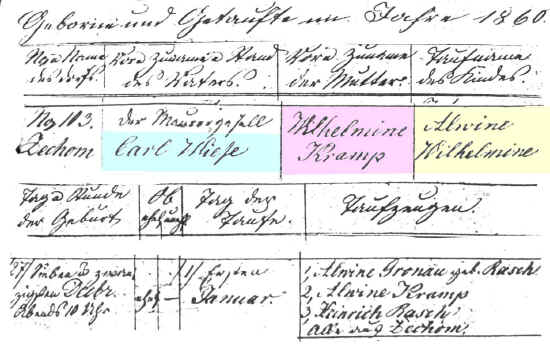 Geborne und Getaufte im Jahre 1860.
No u Name Vor u Zuname u Stand Vor u Zuname Taufname
des Dorfs. des Vaters. der Mutter. des Kindes.
No 103. der Maurergesell Wilhelmine Alwine
Zechom Carl Wiese Kramp Wilhelmine
Tag u Stunde Ob Tag der Taufzeugen.
der Geburt Taufe.
27/ Sieben u zwan 1/ Ersten 1, Alwine Gronau geb. Rasch
zigsten Decbr. ehel. — Januar. 2, Alwine Kramp
Abends 10 Uhr 3, Heinrich Rasch
Alle aus Zechom.